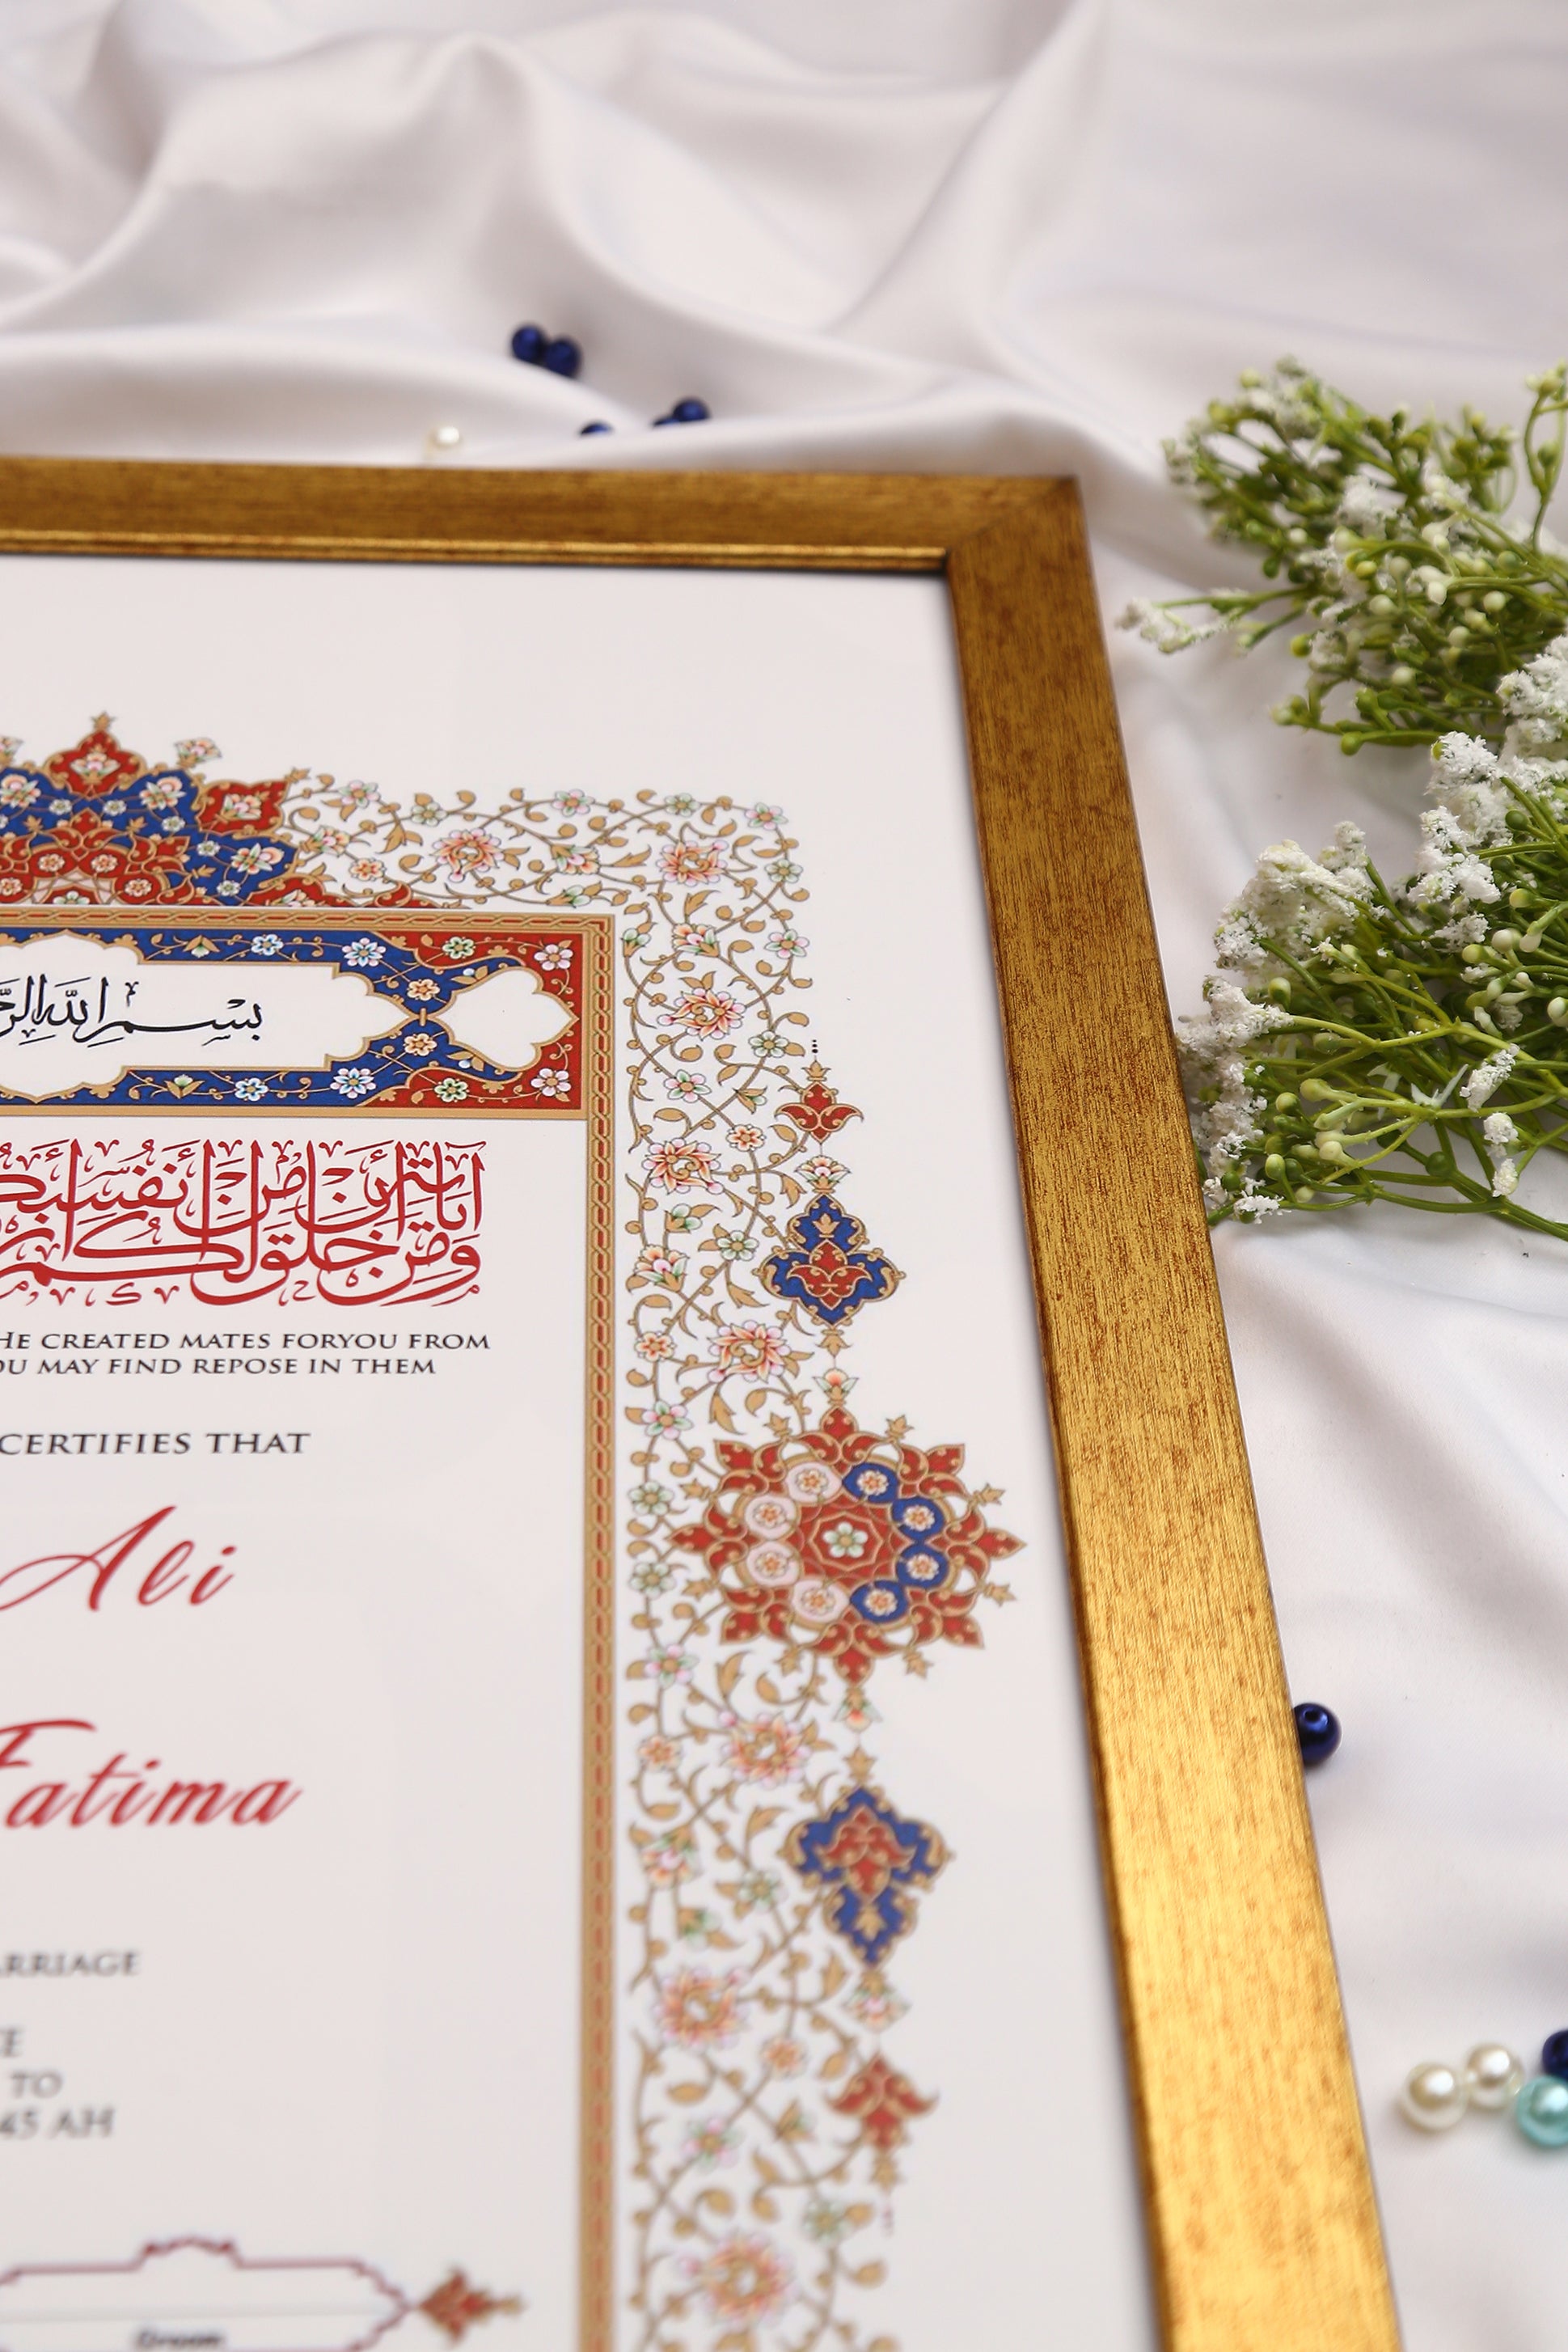 بسم الله
آياته أن من أنفسكم
ومن خلق لكم
HE CREATED MATES FORYOU FROM
YOU MAY FIND REPOSE IN THEM
CERTIFIES THAT
Ali
Fatima
MARRIAGE
TO
45 AH
Groom